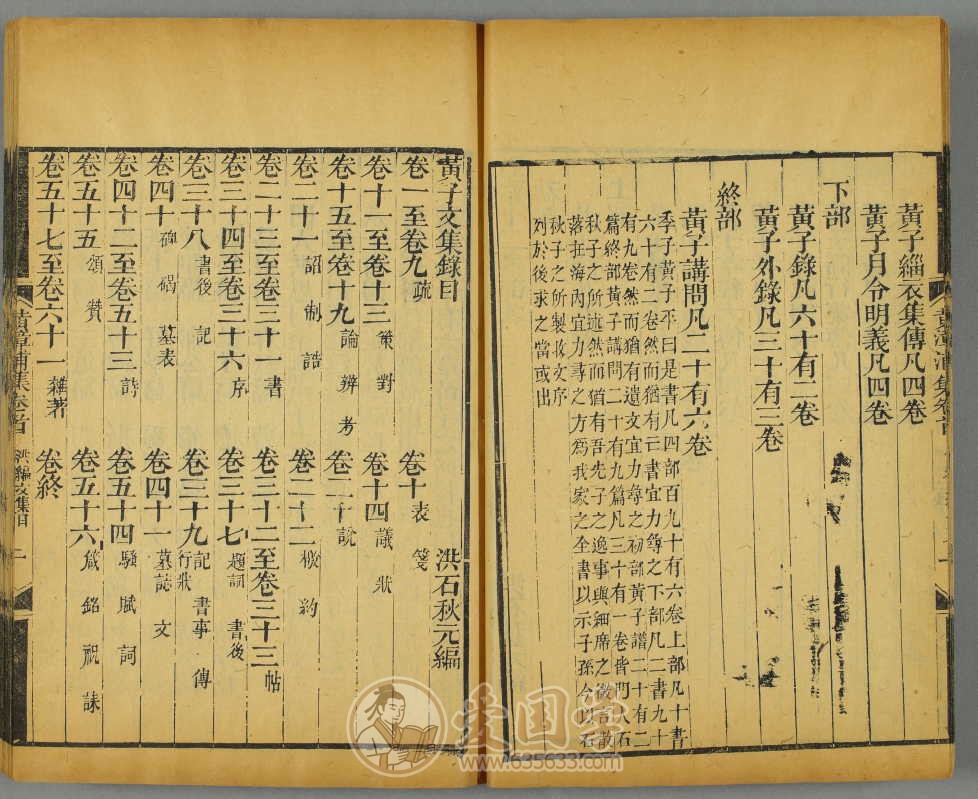 黃子緇衣集傳凡四卷
黃子月令明義凡四卷
下部
黃子錄凡六十有二卷
黃子外錄凡三十有三卷
終部
黃子講問凡二十有六卷
季子黃子平曰是書凡四部百九十有六卷上部凡十書
六十有二卷然而猶有
書宜力
之下部凡二書九十
有九卷然而猶有遺文宜力尋之初部黃子譜二十有二
篇終部黃子講問二十有九篇凡三十有一卷皆門人石
秋子之所述然而猶有吾先子之逸事與細席之微言散
落在海內宜力尋之方為我家之全書以示子孫今以石
秋子之所製收文序
列於後求之當或出
黃漳浦集卷首
黃子文集錄目
洪石秋元編
卷一至卷九疏
卷十表 箋
卷十一至卷十三策 對
卷十四議 狀
卷十五至卷十九論 辨 考
卷二十說
卷二十一詔 制 誥
卷二十二檄 約
卷二十三至卷三十一書
卷三十二至卷三十三帖
卷三十四至卷三十六序
卷三十七題詞 書後
卷三十八書後 記
卷三十九記 書事 傳 行狀
卷四十碑 碣 墓表
卷四十一墓誌 文
卷四十二至卷五十三詩
卷五十四騷 賦 詞
卷五十五頌 贊
卷五十六箴 銘 祝 誄
卷五十七至卷六十一雜著
卷終
黃漳浦集卷首
洪編文集目
一
爱国学
www.635633.com